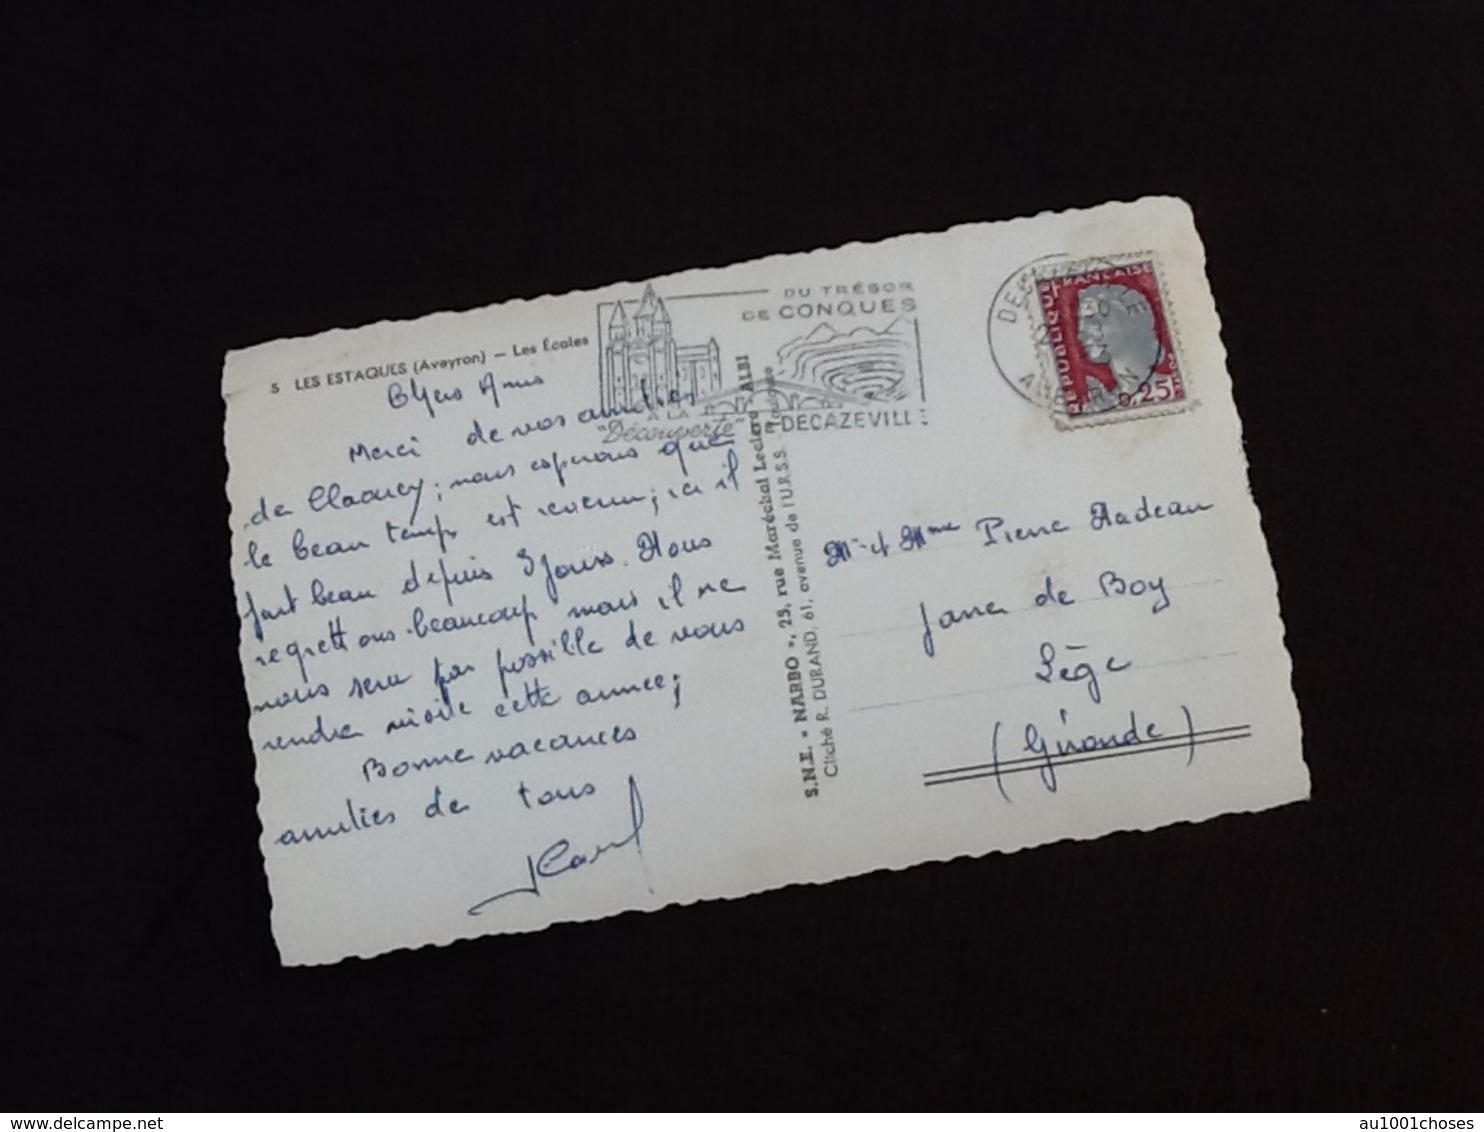 5 LES ESTAQUES (Aveyron) — Les Écoles
Chers Amis
Merci de vos amitiés
de Claouey; nous esperons que
le beau temps est revenu; ici il
fait beau depuis 3 jours. Nous
regrettons beaucoup mais il ne
nous sera pas possible de vous
rendre visite cette année;
Bonne vacances
amitiés de tous
DU TRÉSOR
DE CONQUES
A LA
"Découverte"
DECAZEVILLE
S.N.E. « NARBO », 25, rue Maréchal Leclerc - ALBI
Cliché R. DURAND, 61, avenue de l'U.R.S.S. - Toulouse
REPUBLIQUE FRANÇAISE
0,25
Mr et Mme Pierre Nadeau
Jane de Boy
Lège
(Gironde)
delcampe.net
au1001choses